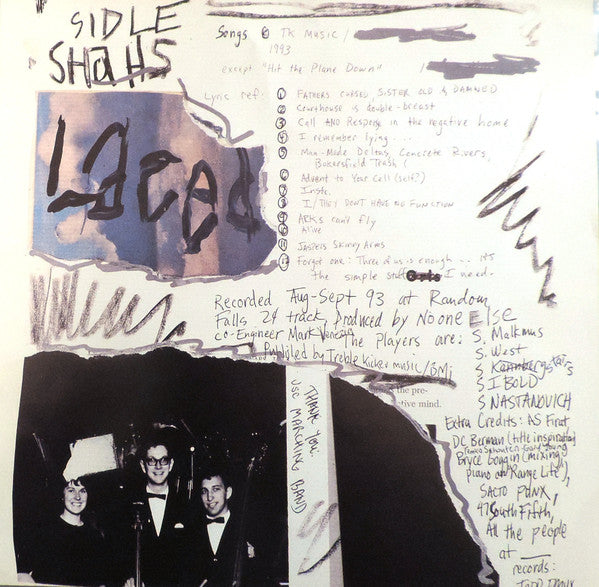 SIDLE
SHAHS
Laced
Songs © TK Music /
1993
except "Hit the Plane Down" /
Lyric ref:
1 FATHERS CURSED, SISTER OLD & DAMNED
2 Courthouse is double-breast
3 Call AND Response in the negative home
4 I remember lying....
5 Man-Made Deltas, Concrete Rivers,
Bakersfield Trash (
6 Advent to Your Cell (self?)
7 Instr.
8 I/THEY DON'T HAVE NO FUNCTION
9 ARKS can't fly
10 Alive
11 Jaspers Skinny Arms
12 Forgot one: Three of us is enough... its
the simple stuff I need.
Recorded Aug-Sept 93 at Random
Falls 24 track, Produced by No one ELSE
co-Engineer Mark Venezia The Players are:
Published by Treble Kicker music/BMI
S. Malkmus
S. West
S Kannbergstairs
S IBOLD
S NASTANOVICH
the pre-
tive mind.
THANK YOU:
USC MARCHING BAND
Extra Credits: AS First,
DC Berman (title inspiration)
Bryce Goggin (mixing,
piano on "Range Life"),
SACTO PUNX,
47 South Fifth,
All the people
at
records: